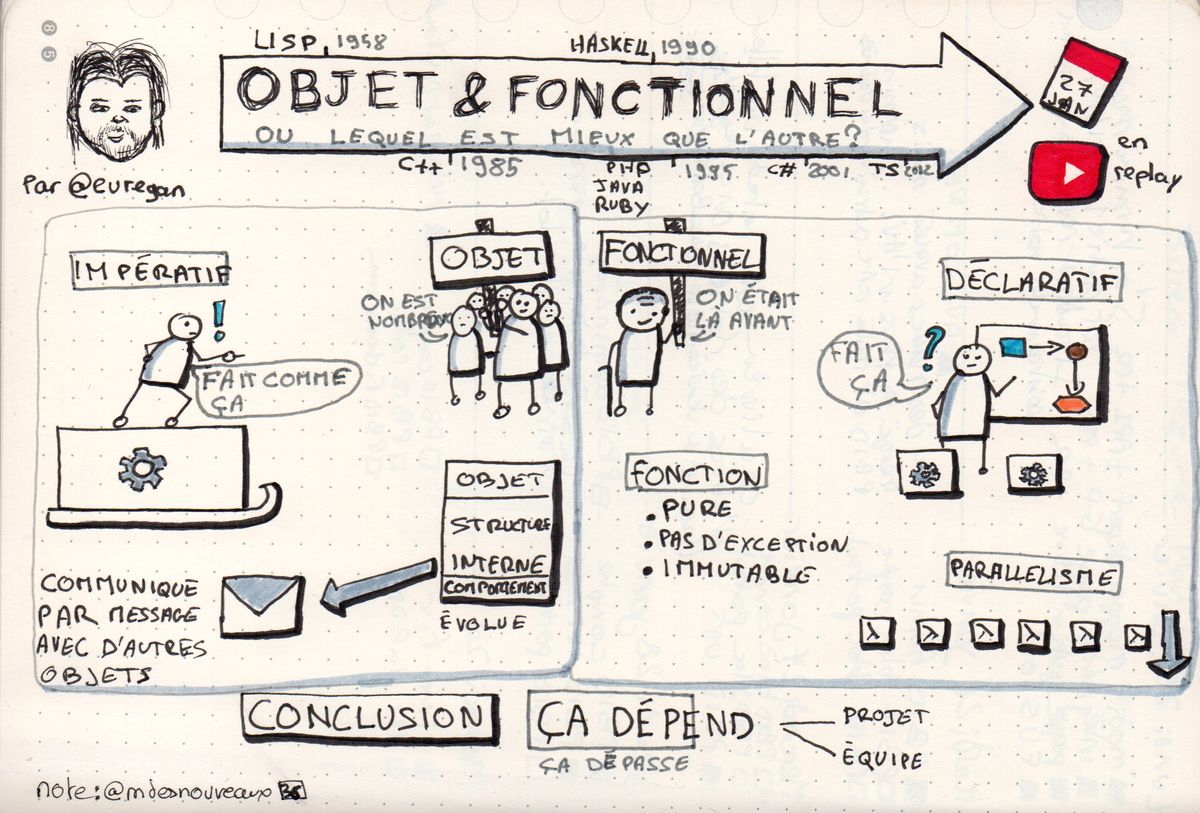 LISP, 1958
HASKELL, 1990
OBJET & FONCTIONNEL
OU LEQUEL EST MIEUX QUE L'AUTRE?
27
JAN
C++ 1985
PHP
JAVA
RUBY
1995
C# 2001
TS 2012
en
replay
Par @euregan
IMPÉRATIF
OBJET
ON EST
NOMBREUX
FAIT COMME
ÇA
OBJET
STRUCTURE
INTERNE
COMPORTEMENT
ÉVOLUE
COMMUNIQUE
PAR MESSAGE
AVEC D'AUTRES
OBJETS
FONCTIONNEL
ON ÉTAIT
LÀ AVANT
DÉCLARATIF
FAIT
ÇA
FONCTION
• PURE
• PAS D'EXCEPTION
• IMMUTABLE
PARALLELISME
λ λ λ λ λ λ
CONCLUSION
ÇA DÉPEND
ÇA DÉPASSE
PROJET
ÉQUIPE
note: @mdesnouveaux